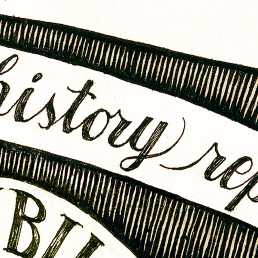 history rep
BU